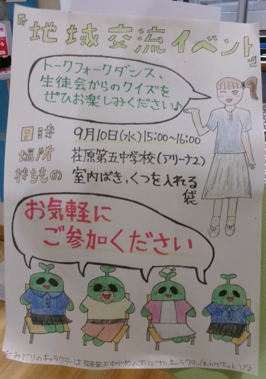 『地域交流イベント』
トークフォークダンス、
生徒会からのクイズを
ぜひお楽しみください♪
日時 9月10日(水)15:00~16:00
場所 荏原第五中学校(アリーナ2)
持ちもの 室内ばき、くつを入れる
袋
お気軽に
ご参加ください